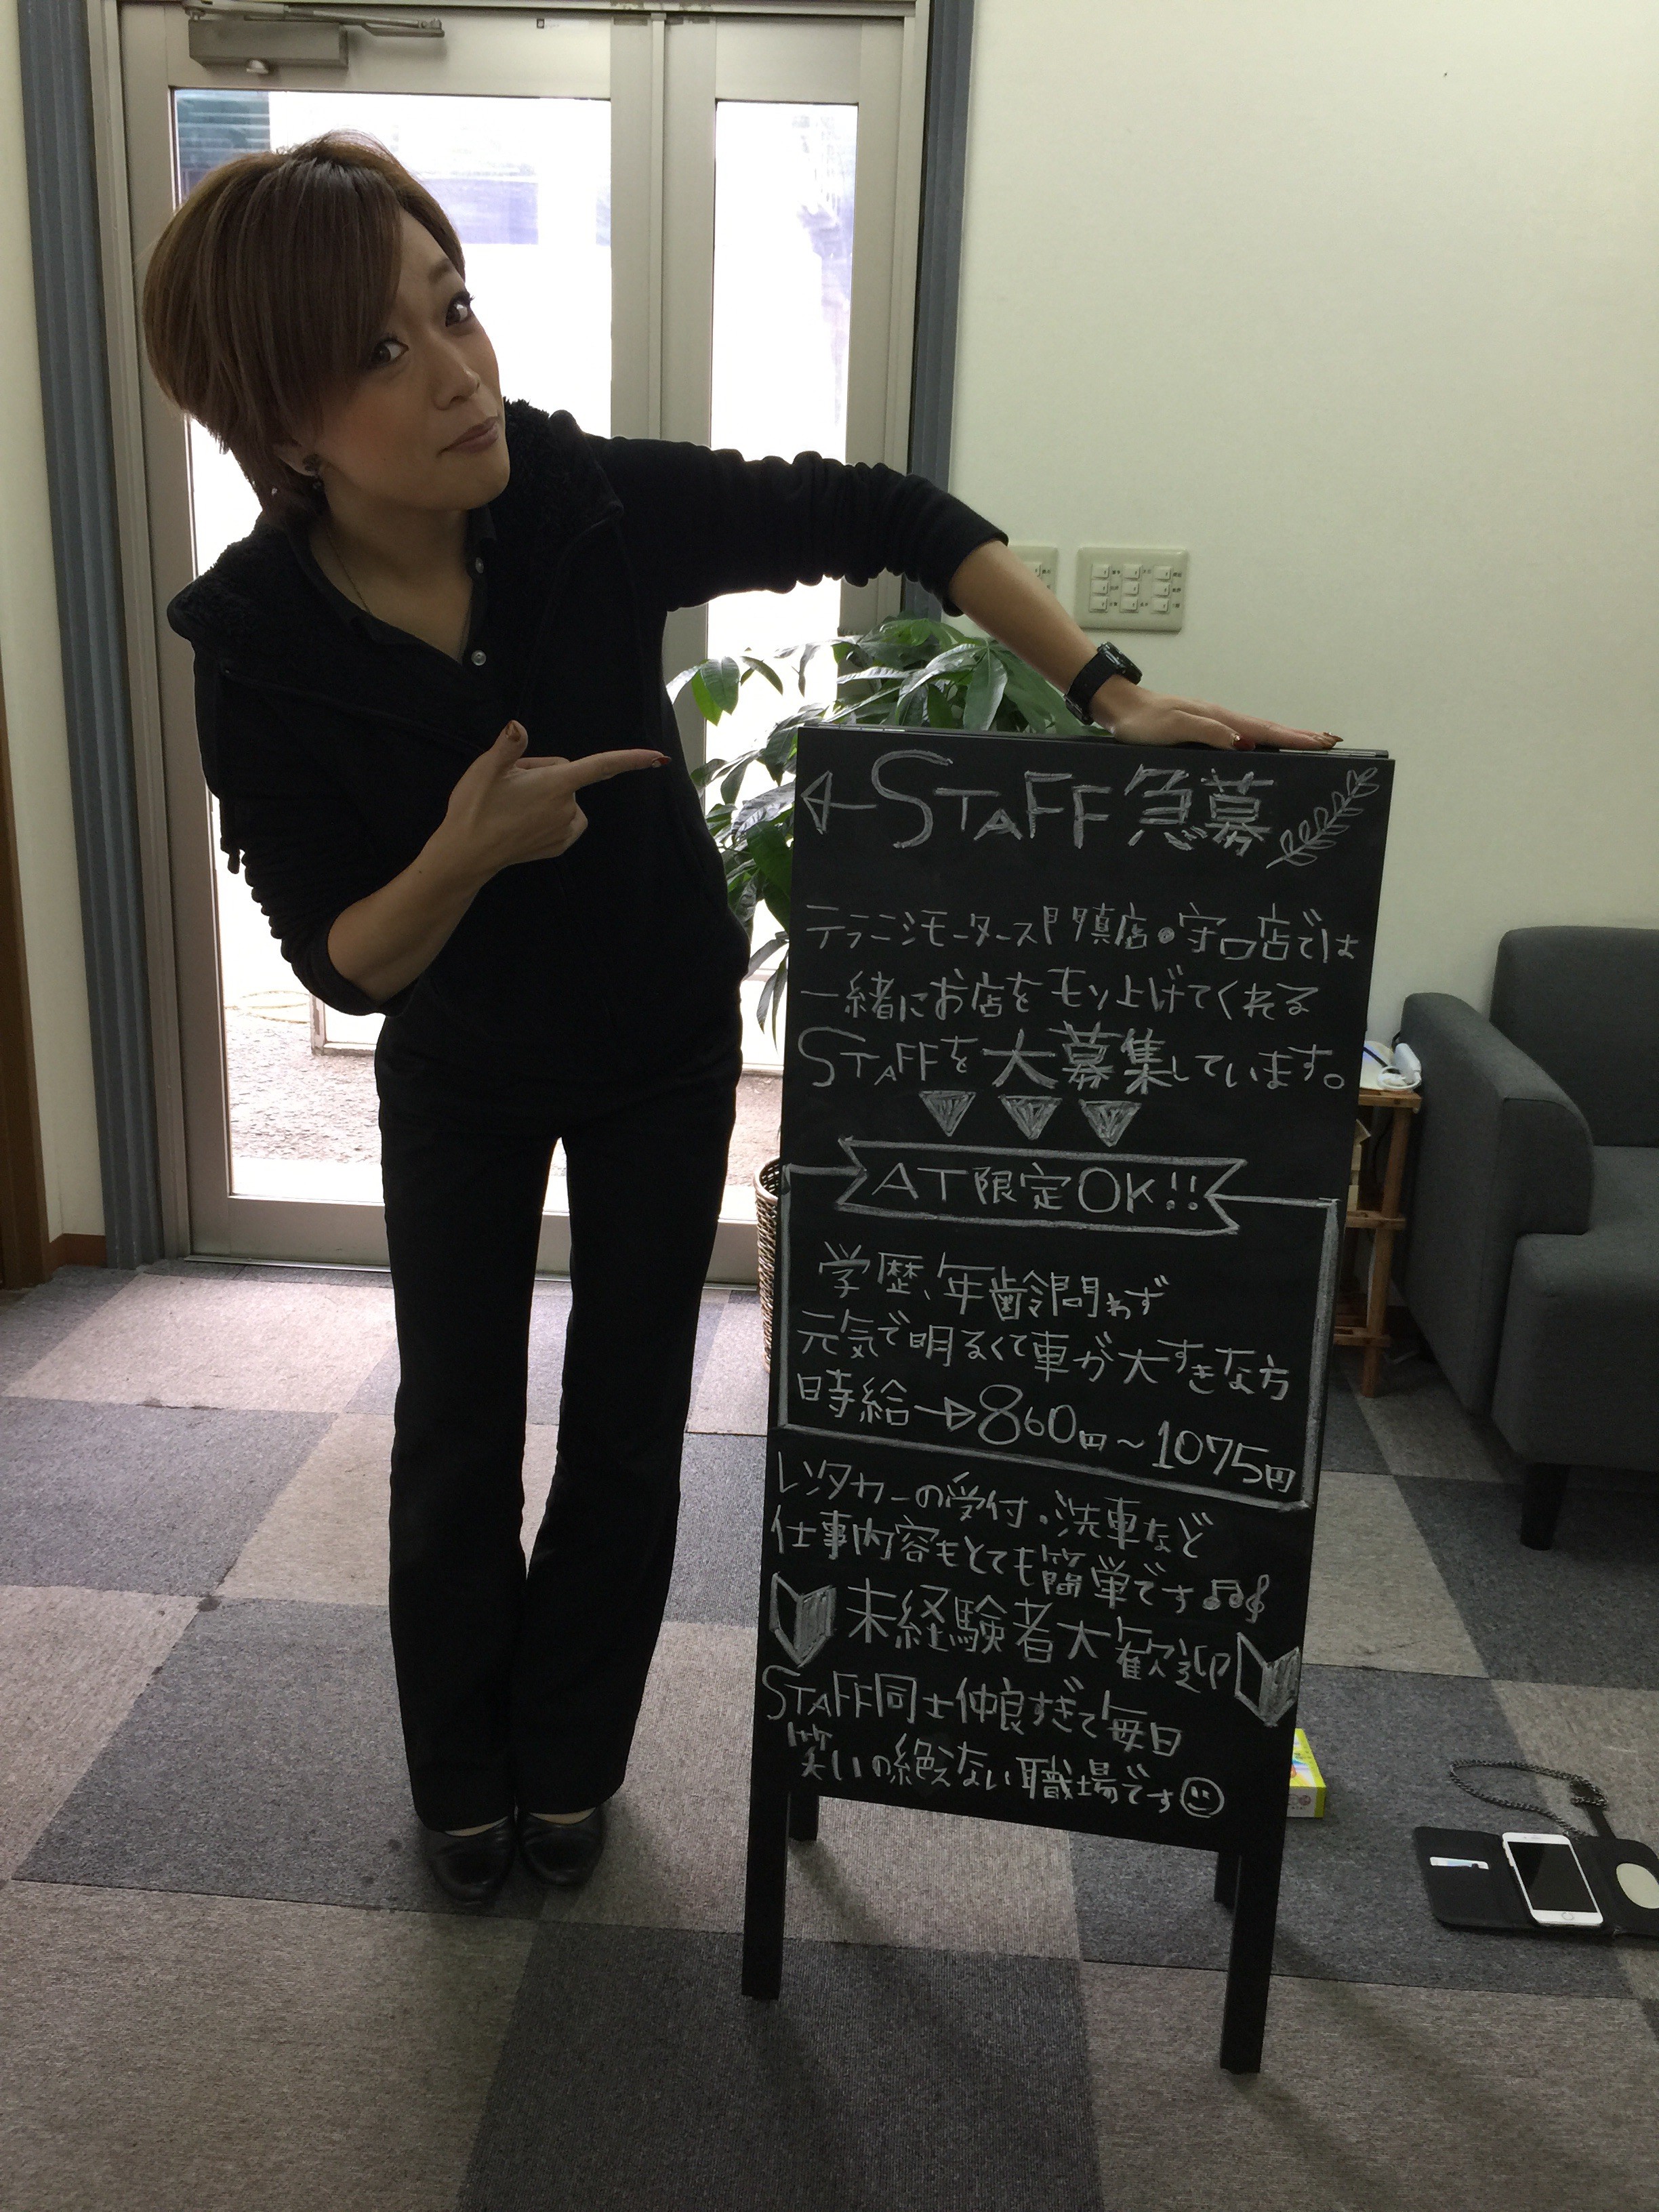 STAFF急募
テラニシモータース門真店・守口店では
一緒にお店をもり上げてくれる
STAFFを大募集しています。
AT限定OK!!
学歴、年齢問わず
元気で明るくて車が大すきな方
時給→860円～1075円
レンタカーの受付・洗車など
仕事内容もとても簡単です
未経験者大歓迎
STAFF同士仲良すぎて毎日
笑いの絶えない職場です